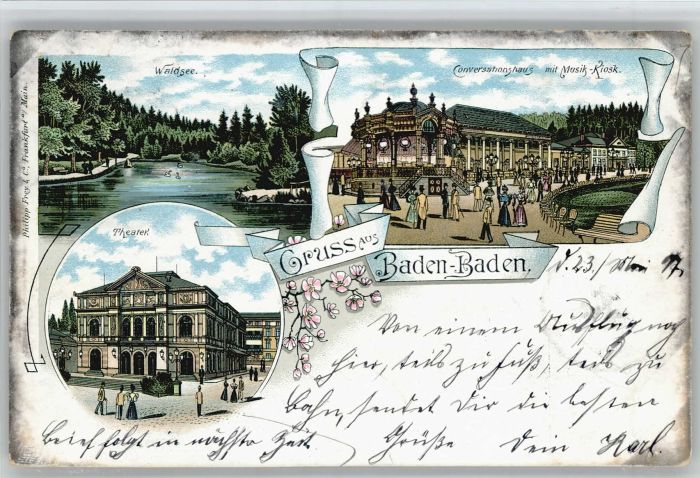 Waldsee.
Conversationshaus mit Musik-Kiosk.
Philipp Frey & Co, Frankfurt a/ Main.
Theater.
Gruss aus
Baden-Baden.
d. 23./ Mai 97
Von einem Ausflug nach
hier, teils zu Fuß, teils zu
Bahn, sendet Dir die besten
Grüße Dein Karl.
Brief folgt in nächster Zeit.